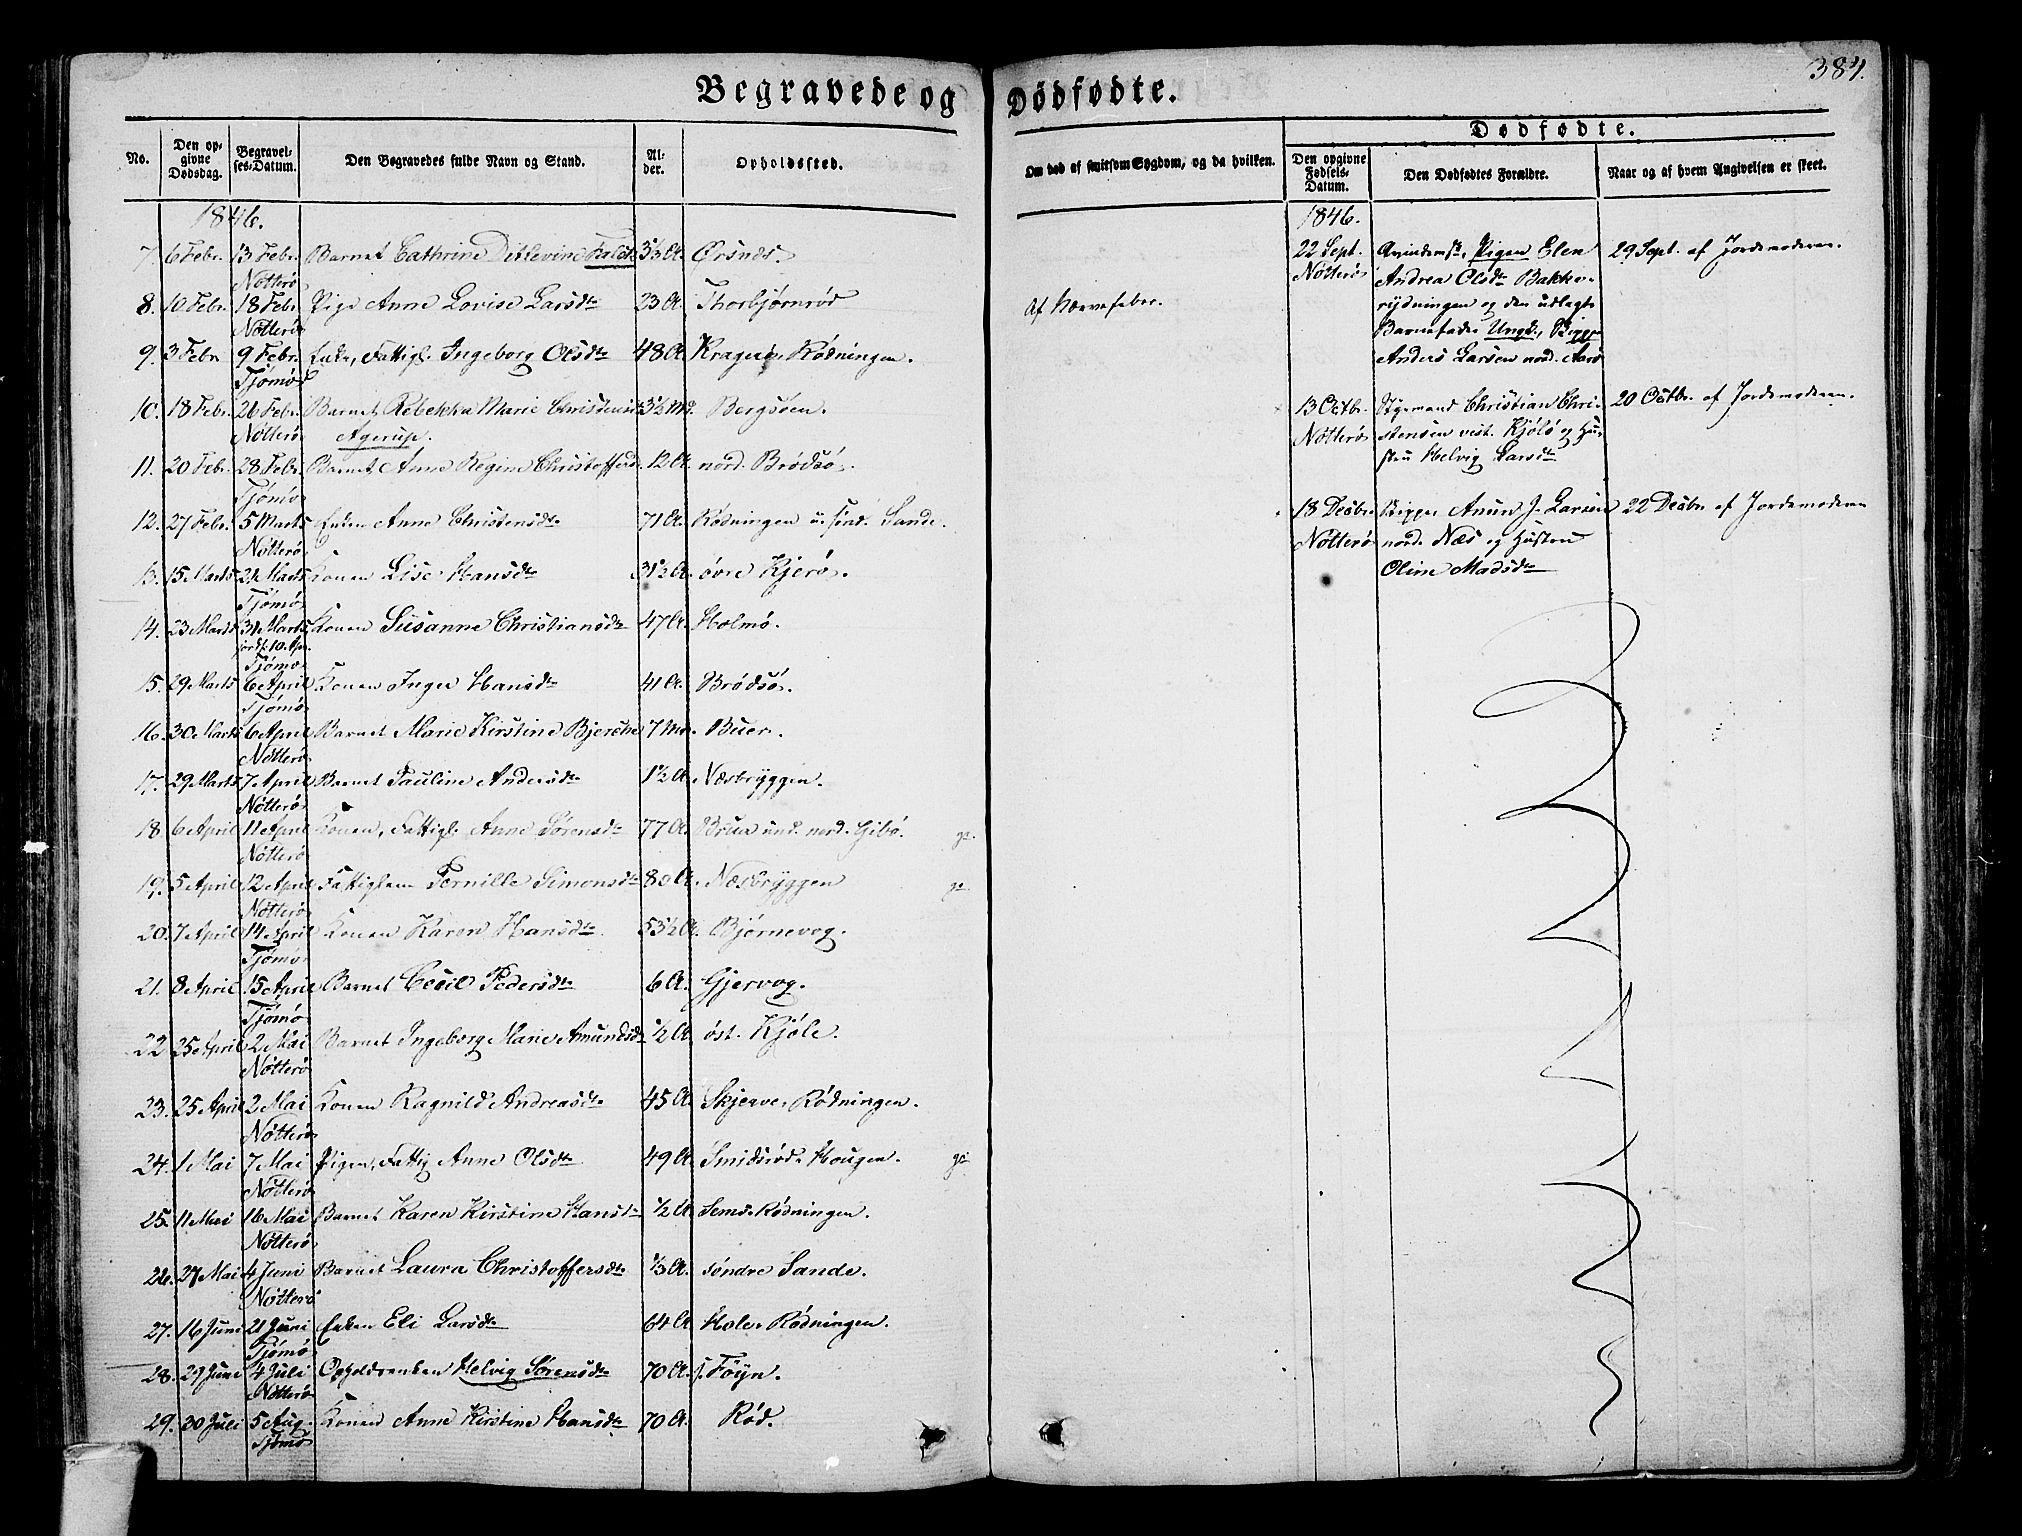 384.
Begravede og Dødfødte.
Dødfødte.
No.
Den opgivne Dødsdag.
Begravelses-Datum.
Den Begravedes fulde Navn og Stand.
Alder.
Opholdssted.
Om død af smitsom Sygdom, og da hvilken.
Den opgivne Fødsels-Datum.
Den Dødfødtes Forældre.
Naar og af hvem Angivelsen er skeet.
1846.
7. 6 Febr. 13 Febr. Barnet Cathrine Ditlevine 3½ A. Ørsnes.
Nøtterø
8. 10 Febr. 18 Febr. Pige Anne Lovise Larsdtr 23 A. Thorbjørnrød Af Nervefeber.
Nøtterø
9. 3 Febr 9 Febr. Enke, Fattigl. Ingeborg Olsdtr 48 A. Kragerø, Rødningen.
Tjømø
10. 18 Febr. 26 Febr. Barnet Rebekka Marie 3½ Md. Bergsøen.
Nøtterø Agerup.
11. 20 Febr. 28 Febr. Barnet Anne Regine Christoffersd. 12 A. nord. Brødsø.
Tjømø
12. 27 Febr. 5 Marts Enken Anne Christensdtr 71 A. Rødningen u. sønd. Sande.
Nøtterø
13. 15 Marts 21 Marts Konen Lise Hansdtr 31½ A. øvre Kjerø.
Tjømø
14. 23 Marts 31 Marts Konen Susanne Christiansdtr 47 A. Holmø.
jordf. 10 Apr.
Tjømø
15. 29 Marts 6 April Konen Inger Hansdtr 41 A. Brødsø.
Tjømø
16. 30 Marts 6 April Barnet Marie Kirstine Bjerche 7 Md. Buer.
Nøtterø
17. 29 Marts 7 April Barnet Pauline Andersdtr 1½ A. Næsbryggen.
Nøtterø
18. 6 April 11 April Konen, Fattigl. Anne Sørensdtr 77 A. Brua und. nord. Gibø.
Nøtterø
19. 5 April 12 April Fattiglem Pernille Simonsdtr 80 A. Næsbryggen
Nøtterø
20. 7 April 14 April Konen Karen Hansdtr. 53½ A. Bjørnevog.
Tjømø
21. 8 April 15 April Barnet Cecil Pedersdtr 6 A. Gjervog.
Tjømø
22 25 April 2 Mai Barnet Ingeborg Marie Amundsdtr ½ A. øst. Kjøle.
Nøtterø
23. 25 April 2 Mai Konen Ragnild Andreasdtr 45 A. Skjerve Rødningen.
Nøtterø
24. 1 Mai 7 Mai Pigen, Fattig Anne Olsdtr 49 A. Smidsrød Hougen.
Nøtterø
25. 11 Mai 16 Mai Barnet Karen Kirstine Hansdtr ½ A. Sems Rødningen.
Nøtterø
26. 27 Mai 4 Juni Barnet Laura Christoffersdtr ⅓ A. søndre Sande.
Nøtterø
27. 16 Juni 21 Juni Enken Eli Larsdtr 64 A. Hole Rødningen.
Tjømø
28. 29 Juni 4 Juli Helvig Sørensdtr 70 A. s. Føyn.
Nøtterø
29. 30 Juli 5 Aug. Konen Anne Kirstine Hansdtr 70 A. Rød.
Tjømø
1846.
22 Sept. Pigen Elen 29 Sept. af Jordemoderen.
Nøtterø Andrea Olsdtr Bakke-
rydningen og den udlagte
Barnefader Ungk.,
Anders Larsen nord. Aarø
13 Octbr. Styrmand Christian Chri- 20 Octbr. af Jordemoderen.
Nøtterø stensen vest. Kjølø og Hu-
stru Helvig Larsdtr
18 Decbr. Anun J. Larsen 22 Decbr. af Jordemoderen
Nøtterø nord. Næs og Hustru
Oline Madsdtr